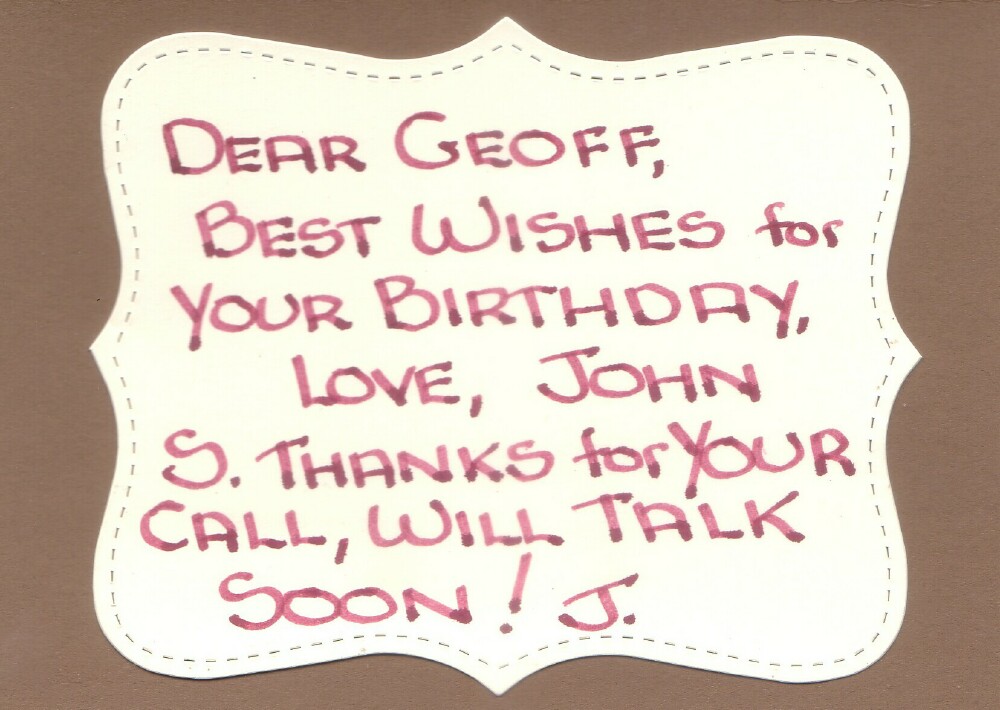 DEAR GEOFF,
BEST WISHES for
YOUR BIRTHDAY,
LOVE, JOHN
S. THANKS for YOUR
CALL, WILL TALK
SOON! J.